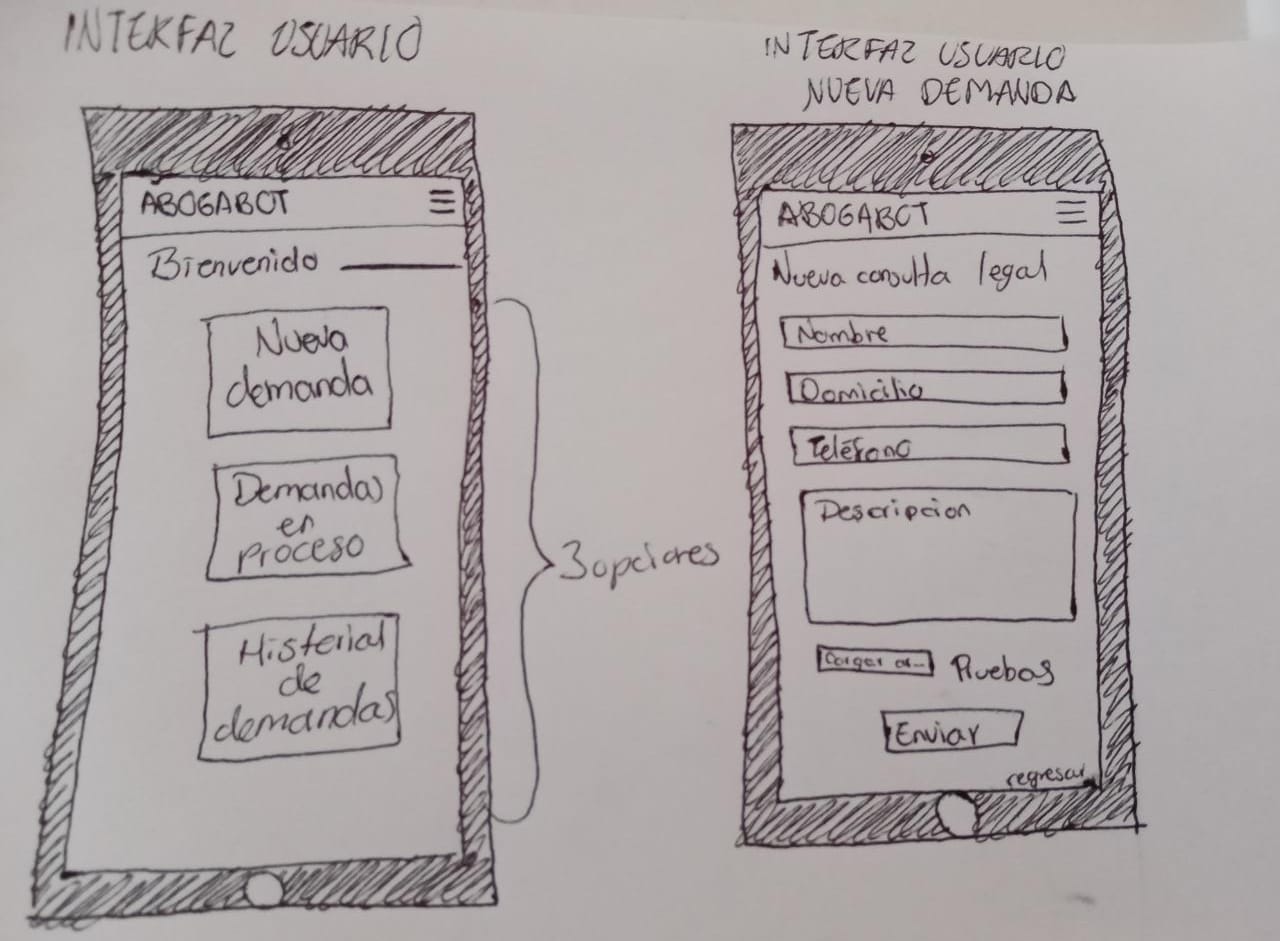 INTERFAZ USUARIO
ABOGABOT
Bienvenido
Nueva
demanda
Demandas
en
proceso
Historial
de
demandas
3 opciones
INTERFAZ USUARIO
NUEVA DEMANDA
ABOGABOT
Nueva consulta legal
Nombre
Domicilio
Teléfono
Descripcion
Cargar ar... Pruebas
Enviar
regresar